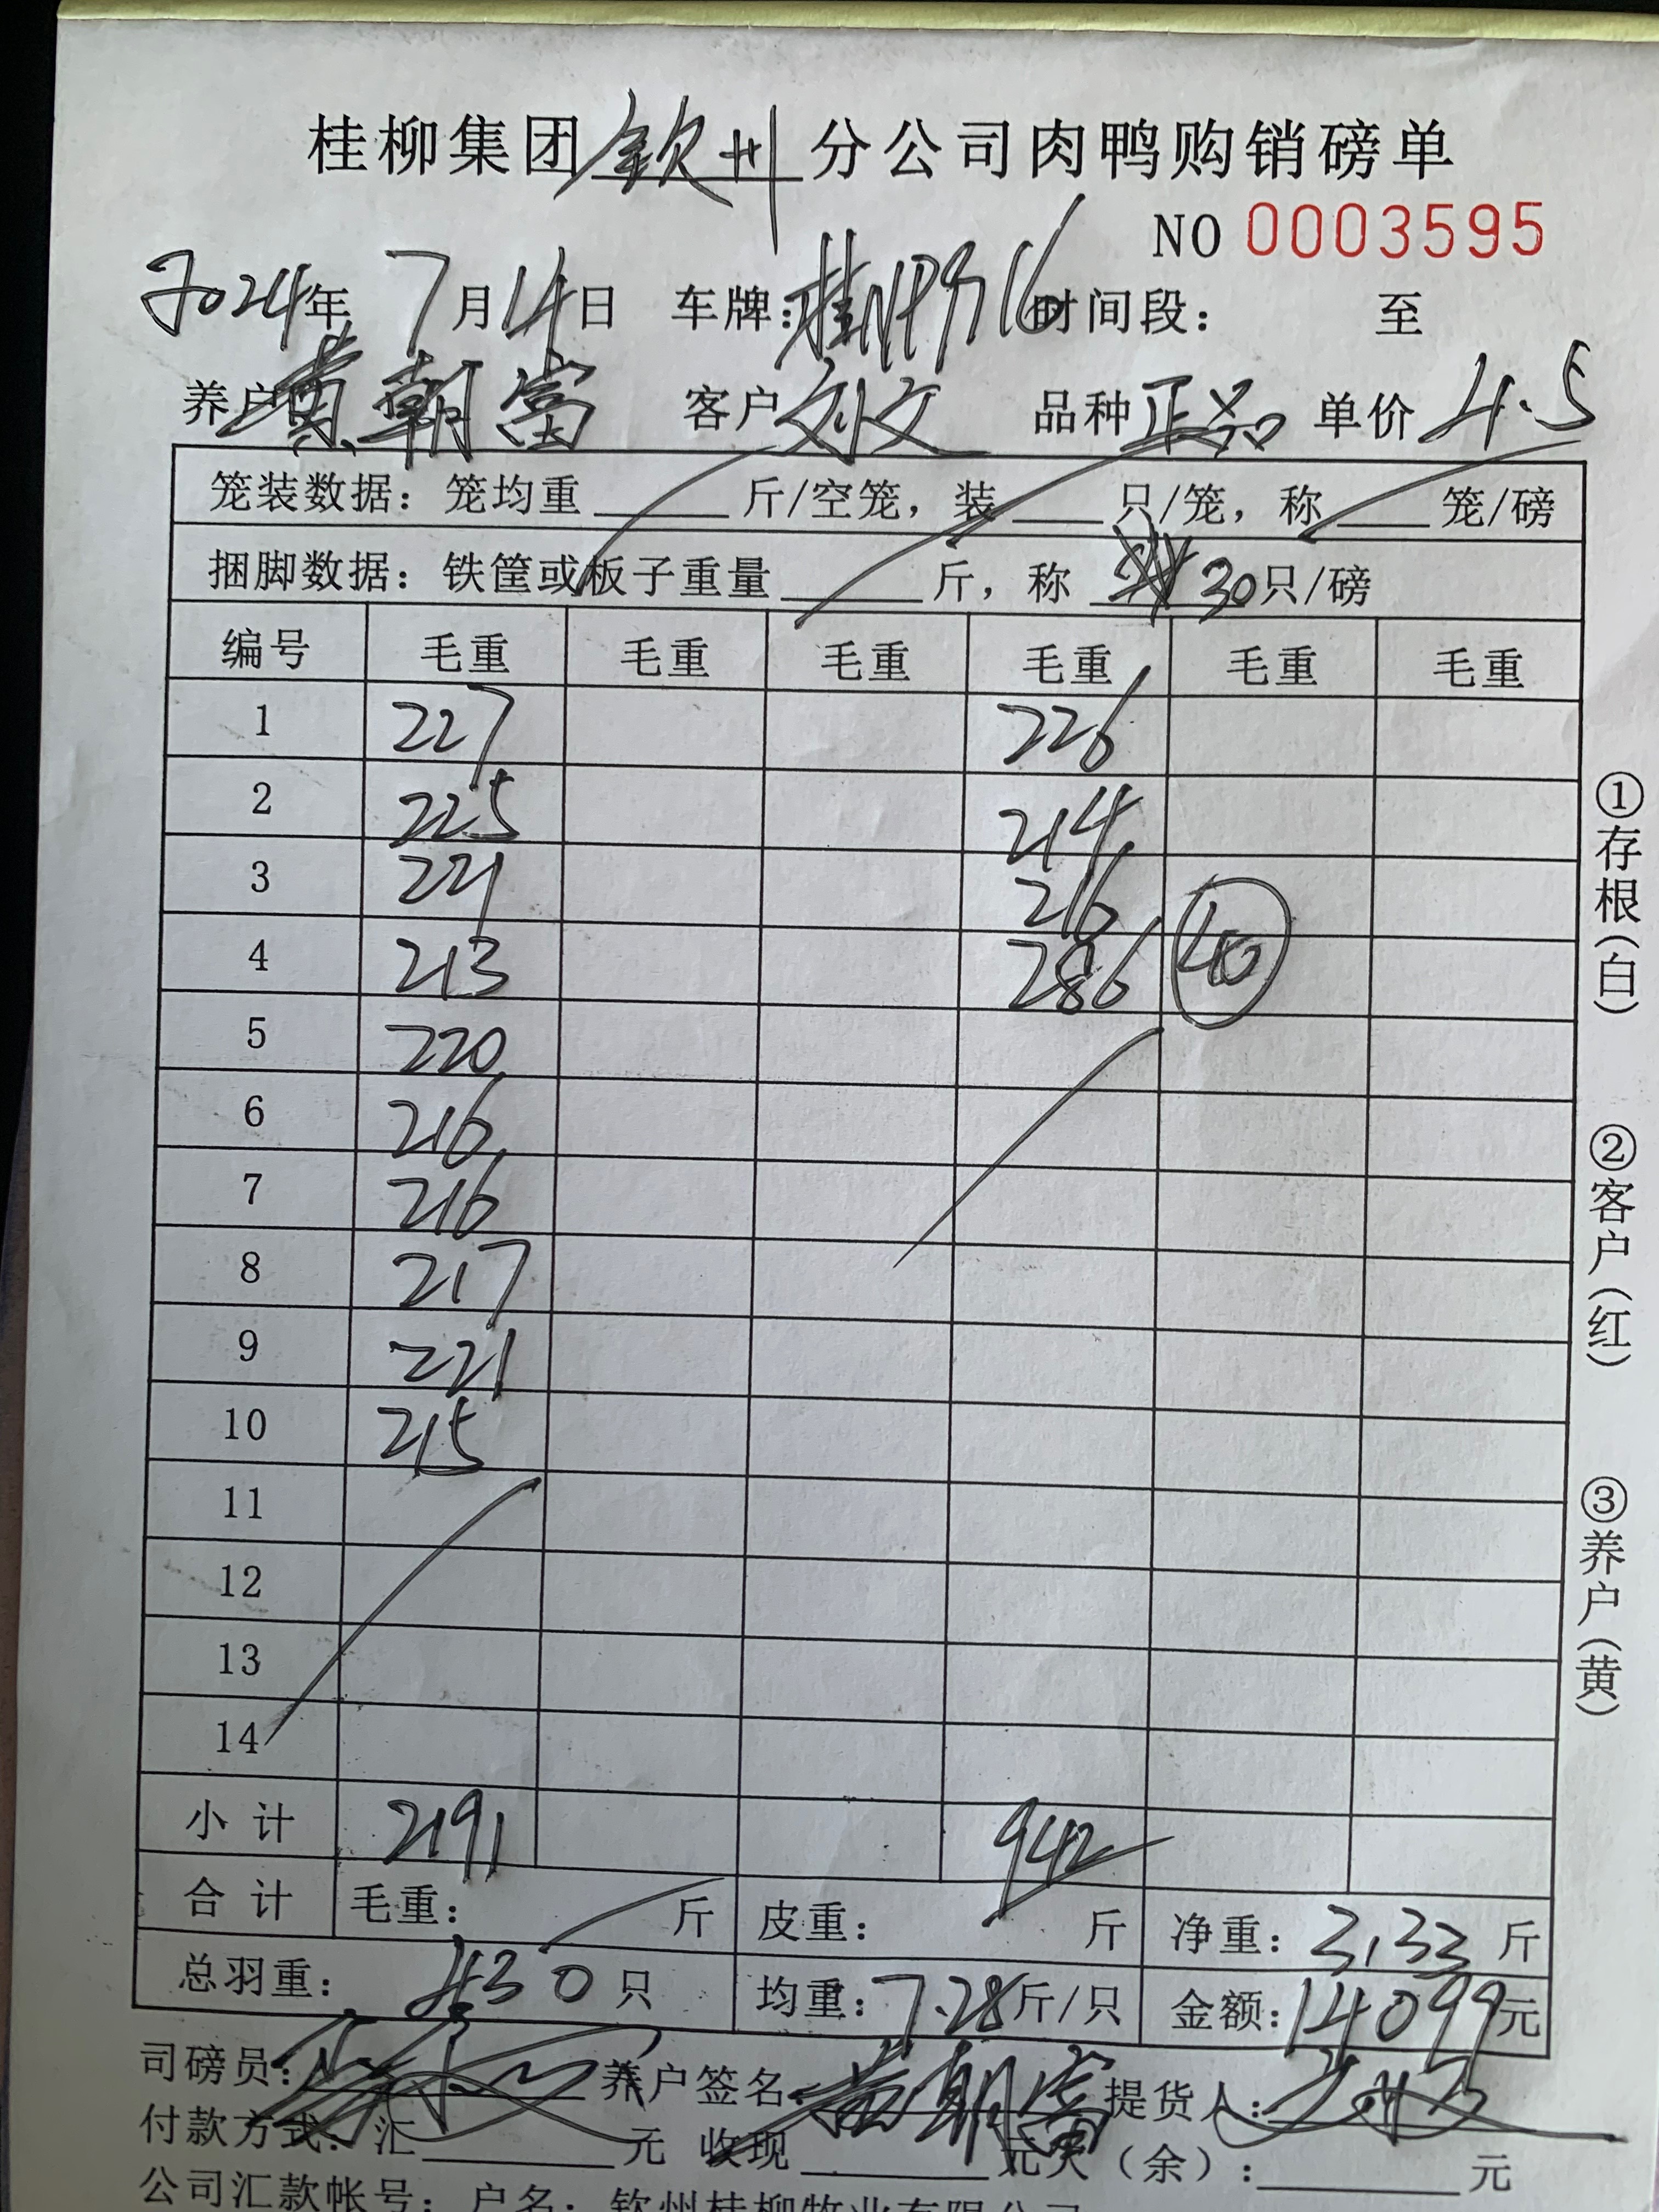 桂柳集团钦州分公司肉鸭购销磅单
NO 0003595
2024年 7月14日 车牌: 时间段: 至
养户黄朝富 客户刘文 品种正品 单价4.5
笼装数据: 笼均重 斤/空笼, 装 只/笼, 称 笼/磅
捆脚数据: 铁筐或板子重量 斤, 称 30只/磅
编号 毛重 毛重 毛重 毛重 毛重 毛重
1 227 226
2 225 214
3 221 216
4 213 286 40
5 220
6 216
7 216
8 217
9 221
10 215
11
12
13
14
小计 2191 942
合计 毛重: 斤 皮重: 斤 净重: 3133 斤
总羽重: 430只 均重: 7.28斤/只 金额: 14099元
司磅员: 养户签名: 黄朝富 提货人:
付款方式: 汇 元 收现 元欠(余): 元
公司汇款帐号: 户名: 钦州桂柳牧业有限公司
①存根(白)
②客户(红)
③养户(黄)